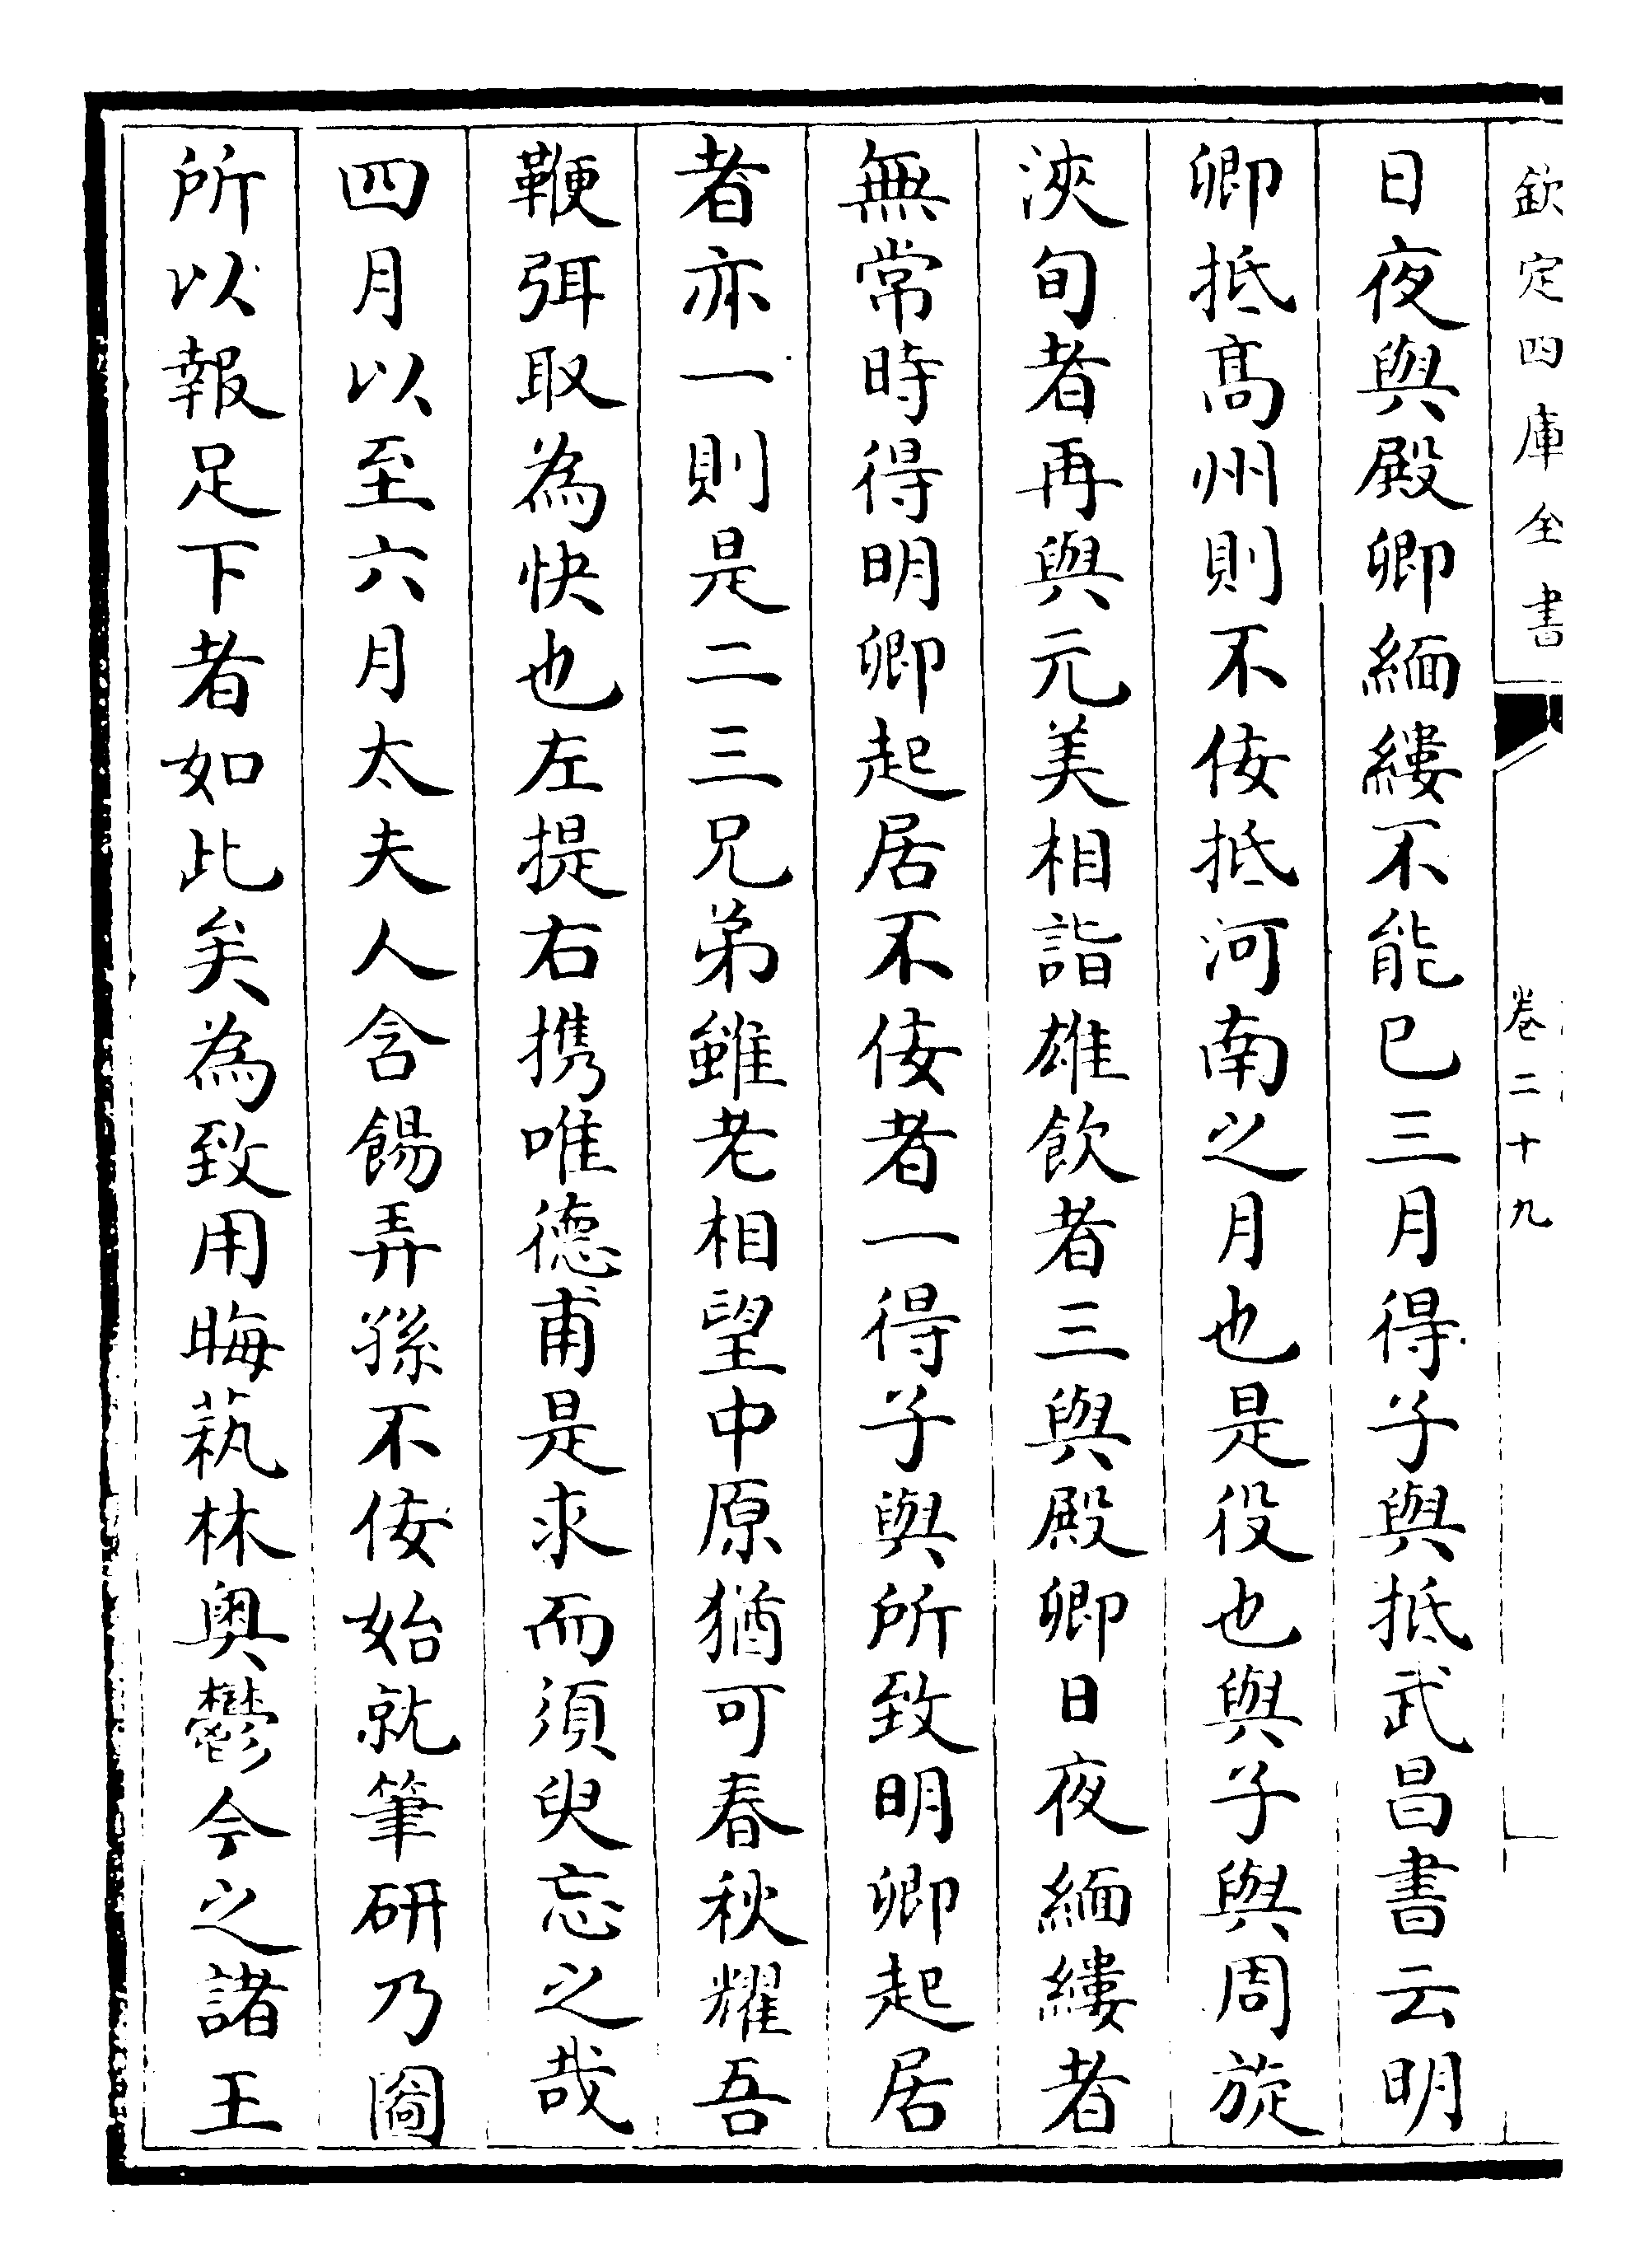 欽定四庫全書
卷二十九
日夜與殿卿緬縷不能已三月得子與抵武昌書云明
卿抵髙州則不佞抵河南之月也是役也與子與周旋
浹旬者再與元美相詣雄飲者三與殿卿日夜緬縷者
無常時得明卿起居不佞者一得子與所致明卿起居
者亦一則是二三兄弟雖老相望中原猶可春秋耀吾
鞭弭取為快也左提右携唯徳甫是求而須臾忘之哉
四月以至六月太夫人含餳弄孫不佞始就筆研乃圖
所以報足下者如此矣為致用晦蓺林奥鬱今之諸王